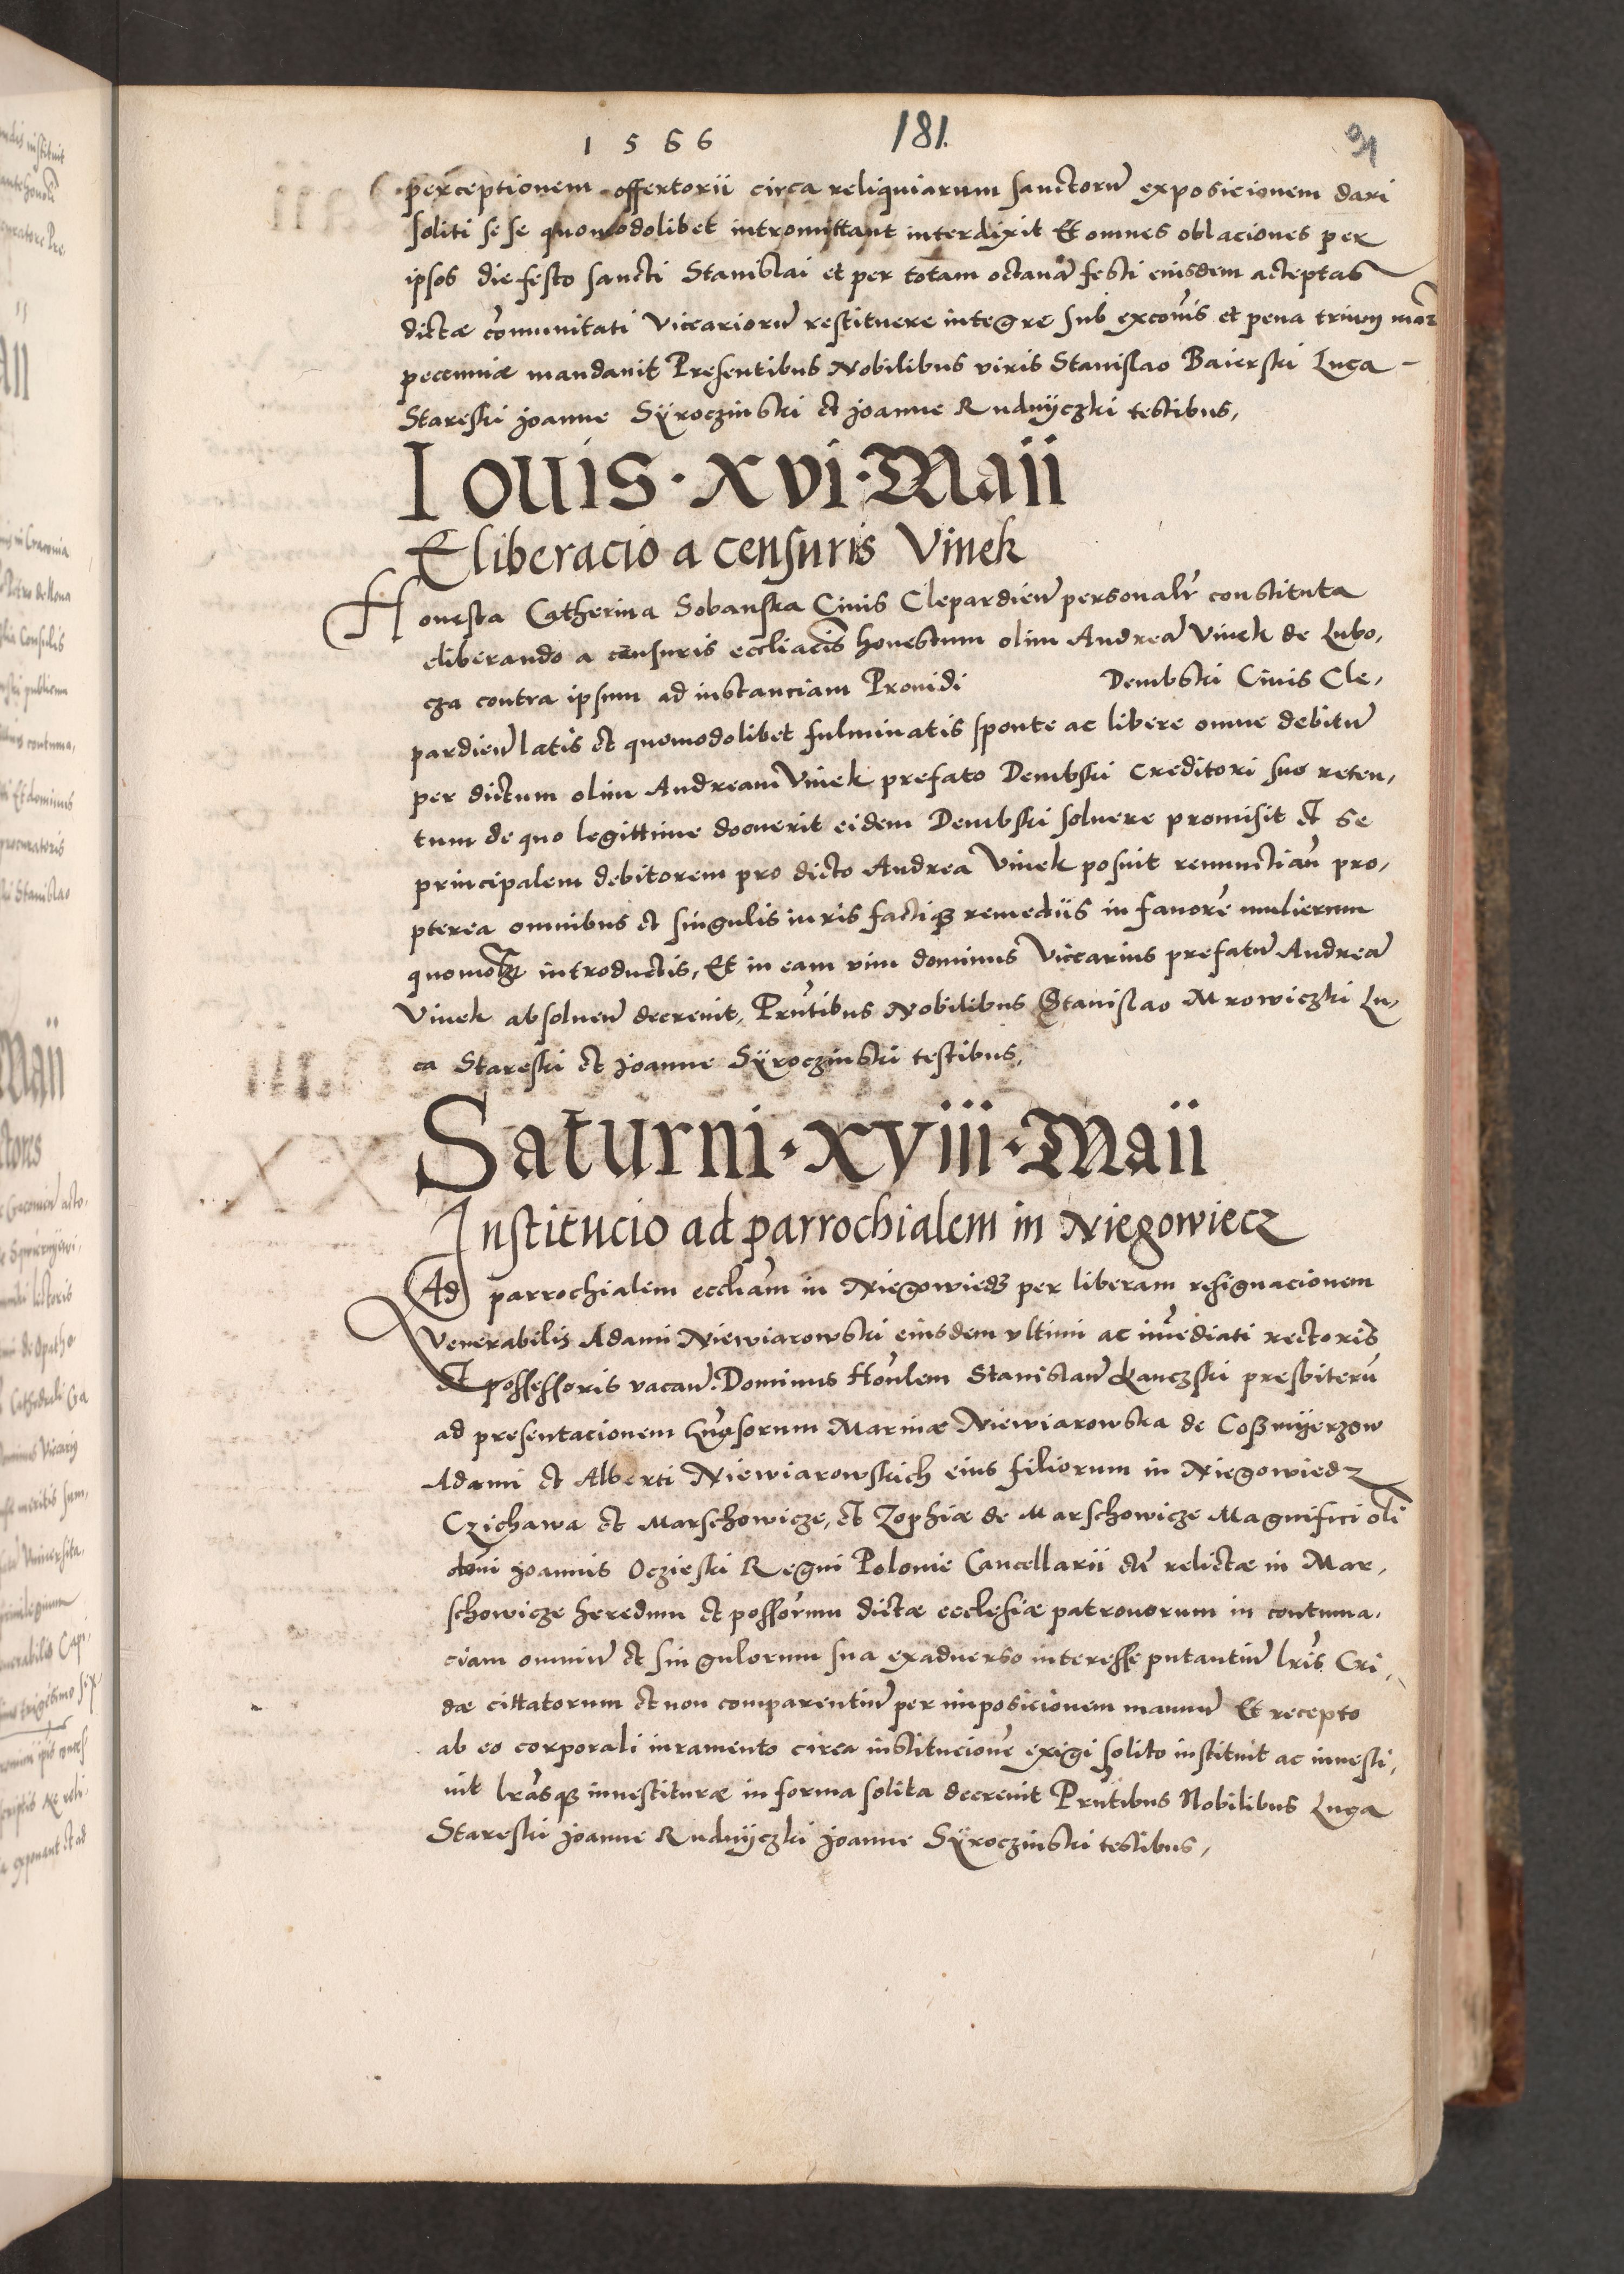 1566 181. 91
perceptionem offertorii circa reliquiarum sanctorũ exposicionem dari
soliti se se quomodolibet intromittant interdixit Et omnes oblaciones per
ipsos die festo sancti Stanislai et per totam octauã festi eiusdem acceptas
dictæ cõmunitati Viccariorũ restituere integre sub excoĩs et pena trium mar
pecuniæ mandauit Presentibus Nobilibus viris Stanislao Baierski Luca
Stareski Joanne Sÿroczinski et Joanne Rudnÿczki testibus,
Iouis · xvi · Maii
Eliberacio a censuris Vinek
Honesta Catherina Sobanska Ciuis Clepardieñ personalr̃ constituta
eliberando a censuris eccliacis̃ honestum olim Andreã Vinek de Lubo,
cza contra ipsum ad instanciam Prouidi Dembski Ciuis Cle,
pardieñ latis et quomodolibet fulminatis sponte ac libere omne debitũ
per dictum olim Andream Vinek prefato Dembski Creditori suo reten,
tum de quo legittime docuerit eidem Dembski soluere promisit et se
principalem debitorem pro dicto Andrea Vinek posuit renunctiañ pro,
pterea omnibus et singulis iuris factiqꝫ remediis in fauorẽ mulierum
introductis, Et in eam vim dominus Viccarius prefatũ Andreã
Vinek absolueñ decreuit, Prñtibus Nobilibus Stanislao Mrowiczki Lu,
ca Stareski et Joanne Sÿroczinski testibus,
Saturni · xviii · Maii
Institucio ad parrochialem in Niegowiecz
Ad parrochialem eccliam̃ in Niegowiedz per liberam resignacionem
Venerabilis Adami Niewiarowski eiusdem vltimi ac im̃ediati rectoris
et possessoris vacañ. Dominus Hon̄lem Stanislaũ Kanczski presbiterũ
ad presentacionem Gñsorum Marinæ Niewiarowska de Coßmÿerzow
Adami et Alberti Niewiarowskich eius filiorum in Niegowiedz
Czichawa et Marschowicze, et Zophiæ de Marschowicze Magnifici oli
dñi Joannis Oczieski Regni Polonie Cancellarii etc̃ relictæ in Mar,
schowicze heredum et possorũm dictæ ecclesiæ patronorum in contuma,
ciam omniũ et singulorum sua exaduerso interesse putantiũ lris̃ Cri,
dæ cittatorum et non comparentiũ per imposicionem manuũ Et recepto
ab eo corporali iuramento circa institucionẽ exigi solito instituit ac inuesti,
uit lras̃qꝫ inuestituræ in forma solita decreuit Prñtibus Nobilibus Luca
Stareski Joanne Rudnÿczki Joanne Sÿroczinski testibus,